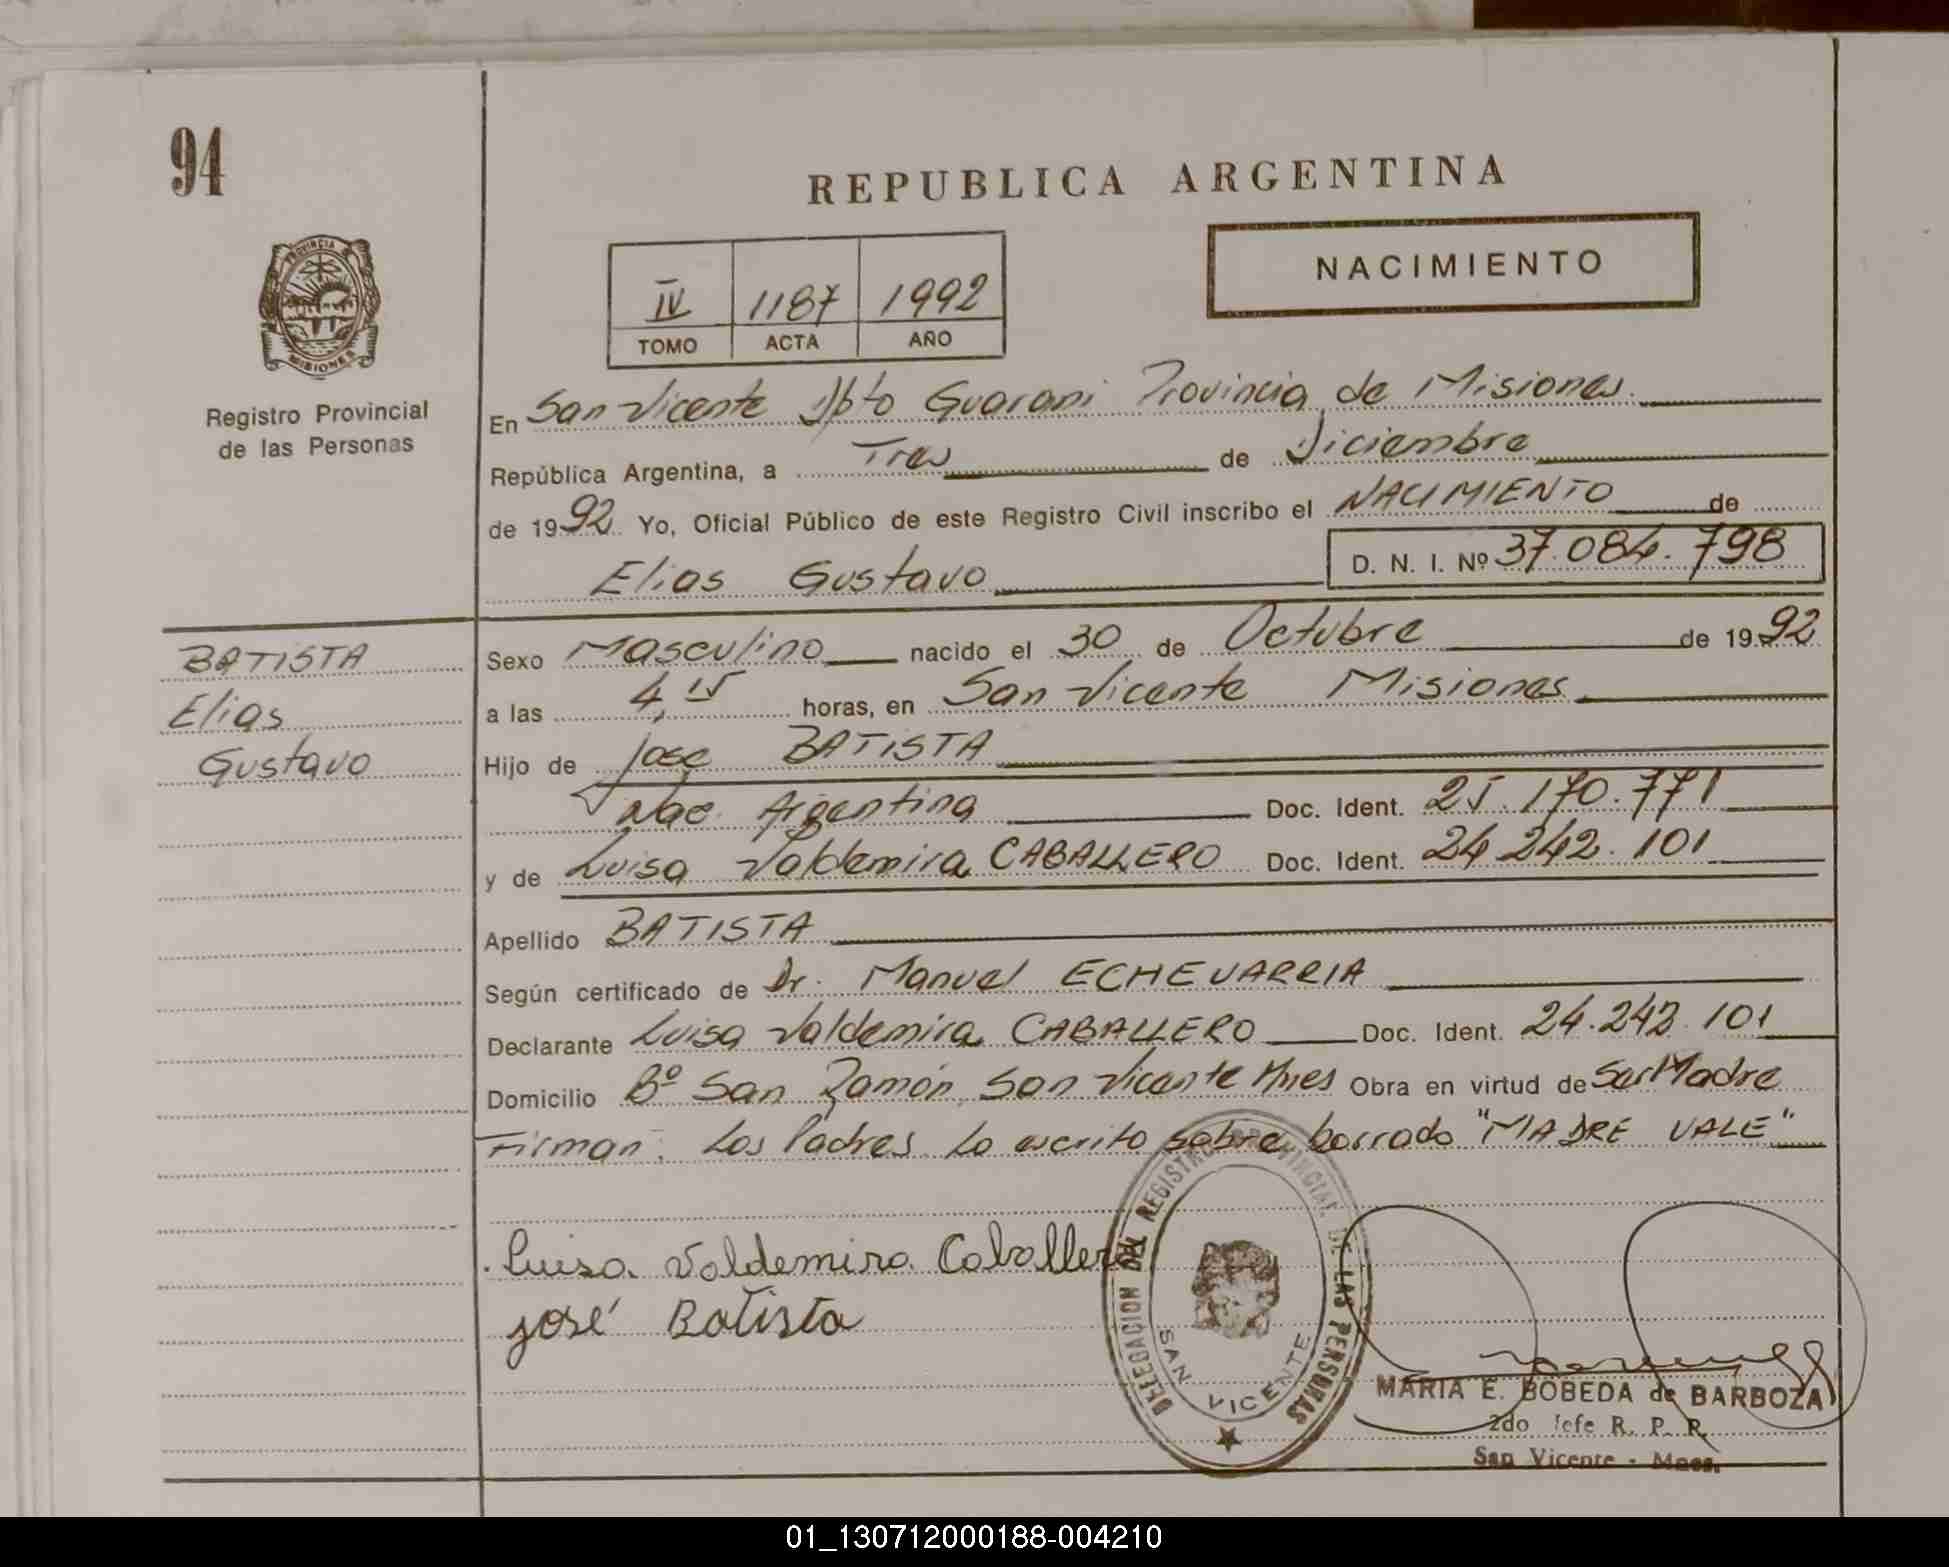 94
REPUBLICA ARGENTINA
PROVINCIA
MISIONES
Registro Provincial
de las Personas
IV 1187 1992
TOMO ACTA AÑO
NACIMIENTO
En San Vicente Dpto Guarani Provincia de Misiones.
República Argentina, a Tres de Diciembre
de 1992 Yo, Oficial Público de este Registro Civil inscribo el NACIMIENTO de
Elias Gustavo D. N. I. Nº 37.084.798
BATISTA
Elias
Gustavo
Sexo Masculino nacido el 30 de Octubre de 1992
a las 4,15 horas, en San Vicente Misiones
Hijo de José BATISTA
Nac. Argentina Doc. Ident. 25.170.771
y de Luisa Valdemira CABALLERO Doc. Ident. 24.242.101
Apellido BATISTA
Según certificado de Dr. Manuel ECHEVARRIA
Declarante Luisa Valdemira CABALLERO Doc. Ident. 24.242.101
Domicilio Bº San Ramón San Vicente Mnes Obra en virtud de Ser Madre
Firman: Los Padres Lo escrito sobre borrado "MADRE VALE"
Luisa Valdemira Caballero
José Batista
DELEGACION DEL REGISTRO PROVINCIAL DE LAS PERSONAS
SAN VICENTE
MARIA E. BOBEDA de BARBOZA
2do Jefe R. P. P.
San Vicente - Mnes.
01_130712000188-004210